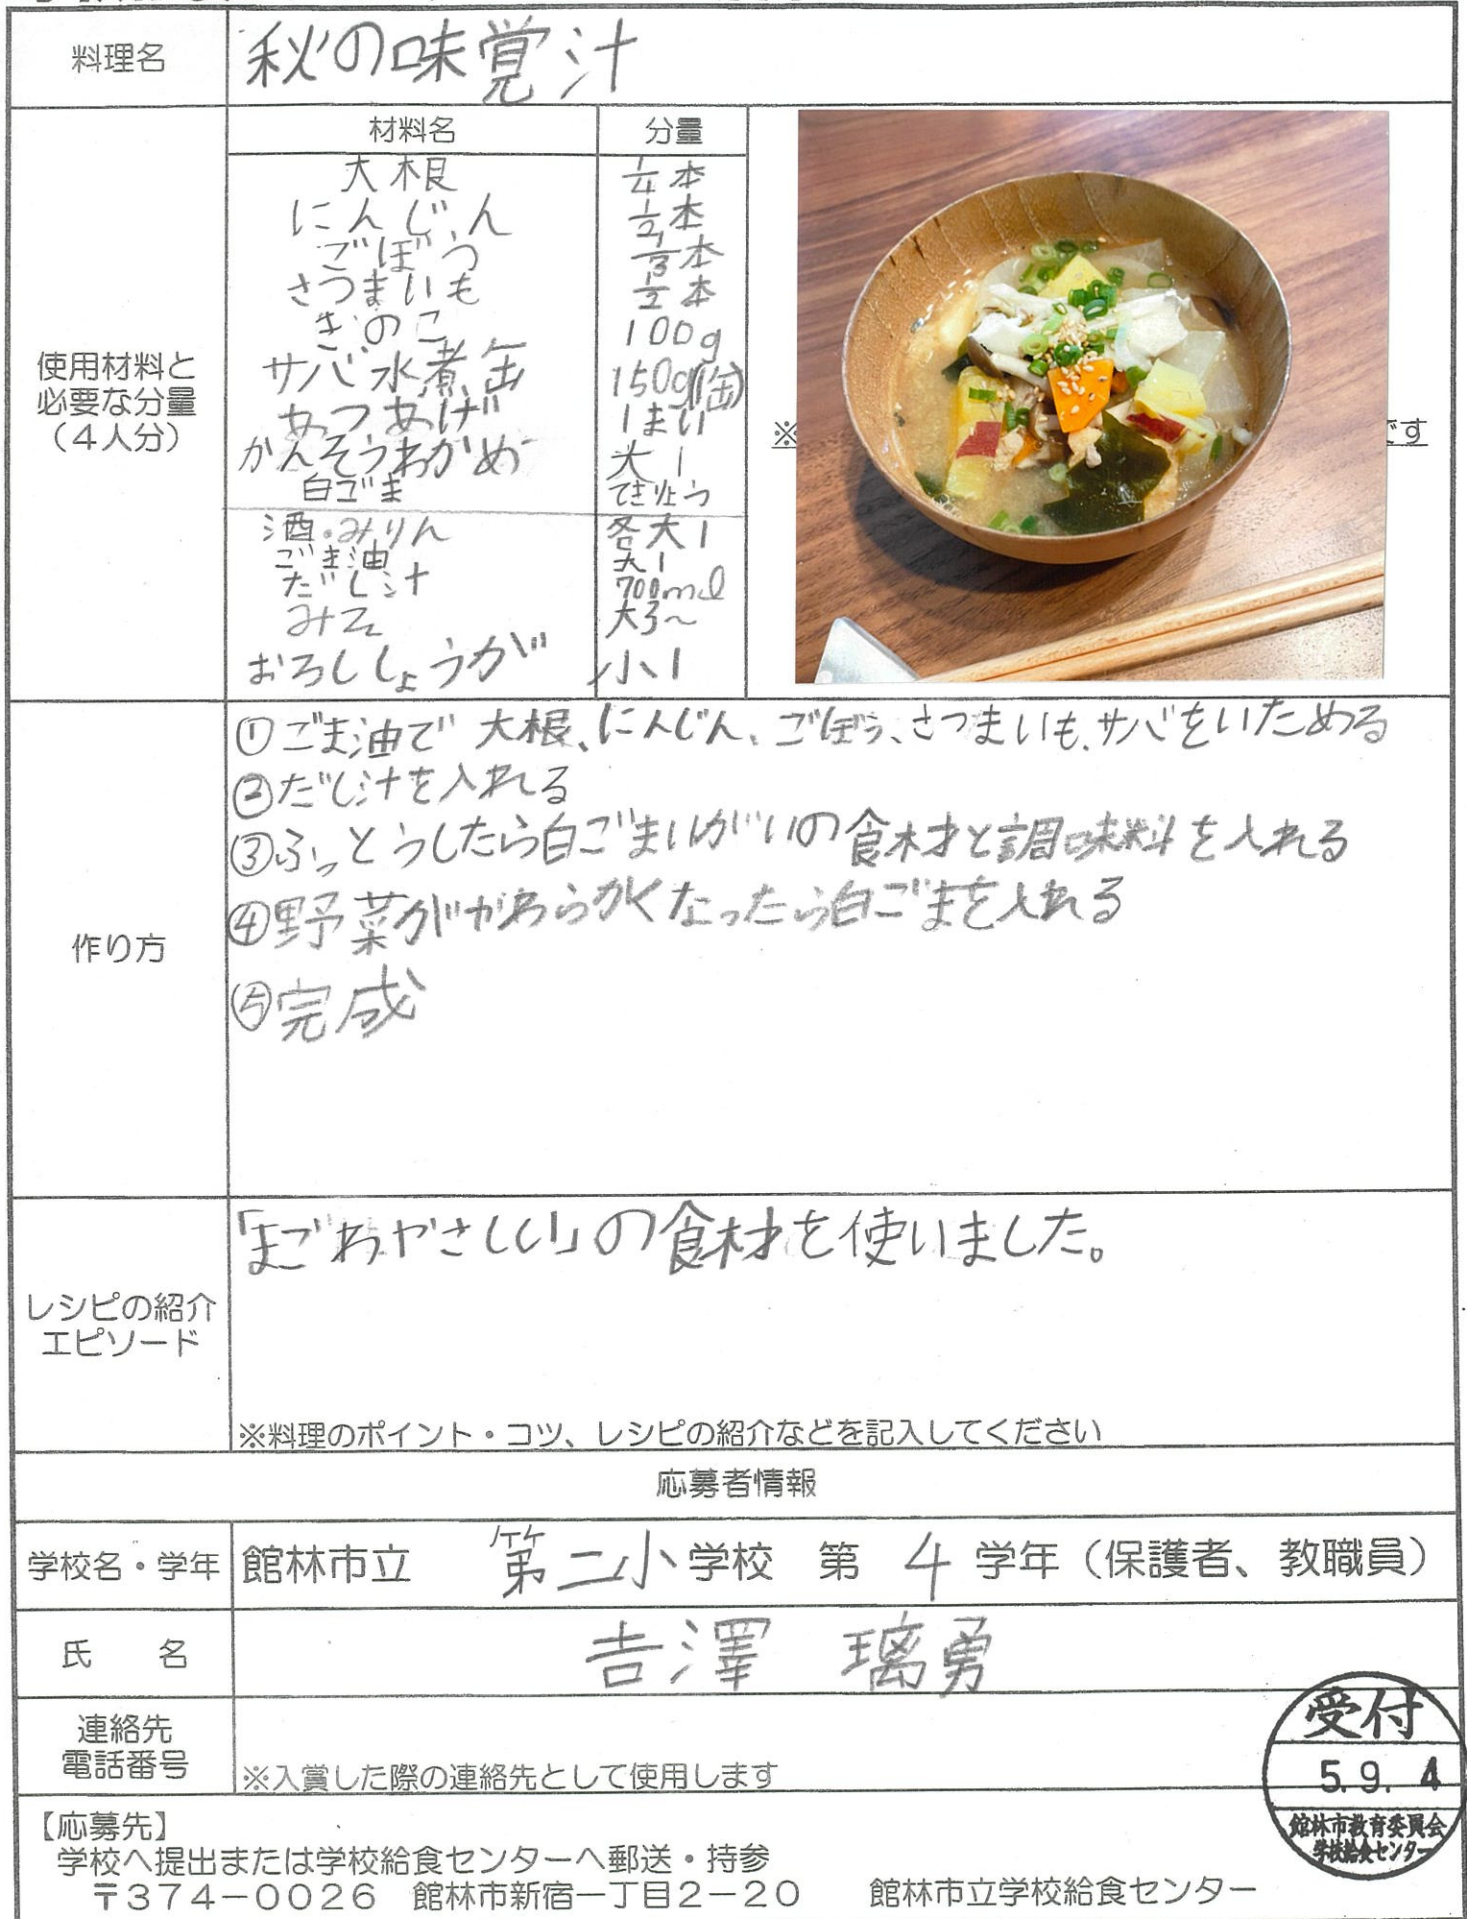 料理名
秋の味覚汁
使用材料と
必要な分量
(4人分)
材料名 分量
大根 1/4本
にんじん 1/2本
ごぼう 1/3本
さつまいも 1/2本
きのこ 100g
サバ水煮缶 150g(缶)
あつあげ 1まい
かんそうわかめ 大1
白ごま てきりょう
酒・みりん 各大1
ごま油 大1
だし汁 700ml
みそ 大3~
おろししょうが 小1
※
です
作り方
①ごま油で大根、にんじん、ごぼう、さつまいも、サバをいためる
②だし汁を入れる
③ふっとうしたら白ごまいがいの食材と調味料を入れる
④野菜がやわらかくなったら白ごまを入れる
⑤完成
レシピの紹介
エピソード
「まごわやさしい」の食材を使いました。
※料理のポイント・コツ、レシピの紹介などを記入してください
応募者情報
学校名・学年
館林市立 第二小学校 第 4 学年(保護者、教職員)
氏 名
吉澤 璃勇
連絡先
電話番号
※入賞した際の連絡先として使用します
受付
5.9.4
館林市教育委員会
学校給食センター
【応募先】
学校へ提出または学校給食センターへ郵送・持参
〒374-0026 館林市新宿一丁目2-20 館林市立学校給食センター